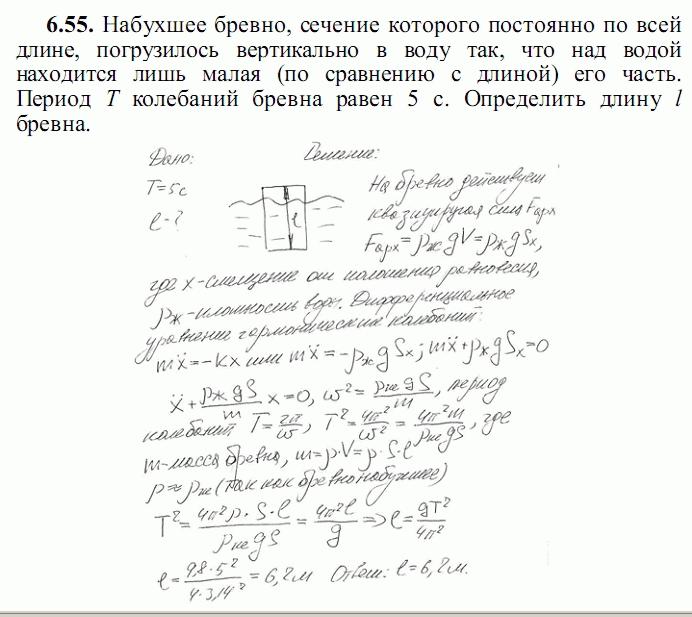 6.55. Набухшее бревно, сечение которого постоянно по всей
длине, погрузилось вертикально в воду так, что над водой
находится лишь малая (по сравнению с длиной) его часть.
Период T колебаний бревна равен 5 с. Определить длину l
бревна.
Дано: Решение:
T=5с
l-?
l
На бревно действует
квазиупругая сила Fарх
Fарх=ρж gV=ρж gSx,
где x-смещение от положения равновесия,
ρж-плотность воды. Дифференциальное
уравнение гармонических колебаний:
mẍ=-kx или mẍ=-ρж gSx; mẍ+ρж gSx=0
ẍ+ρж gS/m x=0, ω²=ρж gS/m, период
колебаний T=2π/ω, T²=4π²/ω²=4π²m/ρж gS, где
m-масса бревна, m=ρ·V=ρ·S·l
ρ≈ρж (так как бревно набухшее)
T²=4π²ρ·S·l/ρж gS=4π²l/g ⇒ l=gT²/4π²
l=9,8·5²/4·3,14²=6,2м Ответ: l=6,2м.